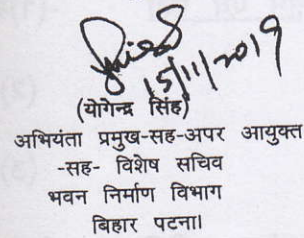 15/11/2019
(योगेन्द्र सिंह)
अभियंता प्रमुख-सह-अपर आयुक्त
-सह- विशेष सचिव
भवन निर्माण विभाग
बिहार पटना।